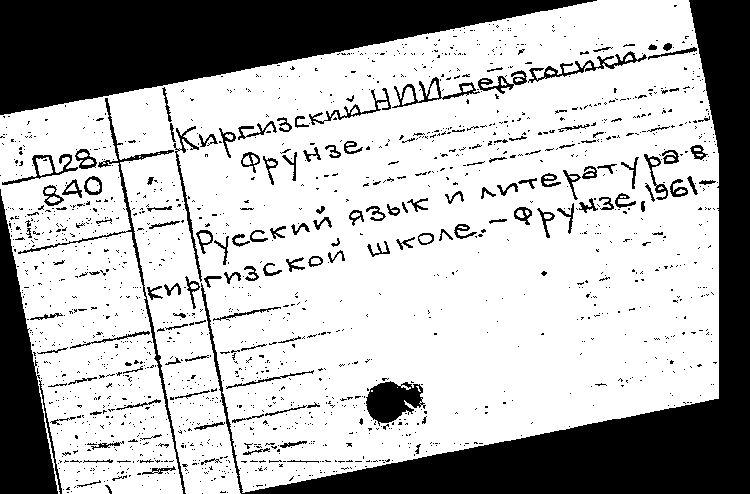 Киргизский НИИ педагогики..
Фрунзе.
П28
840
Русский язык и литература в
киргизской школе.-Фрунзе,1961-